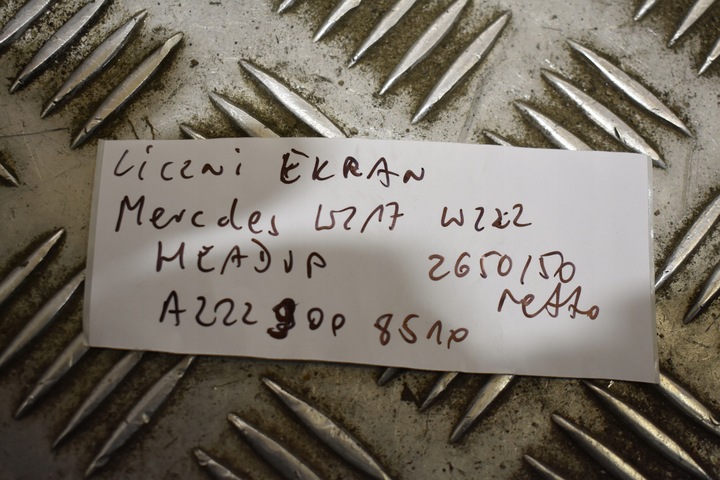 Liczni EKRAN
Mercdes W217 W222
HEADUP 2650/50
netto
A222 900 8510